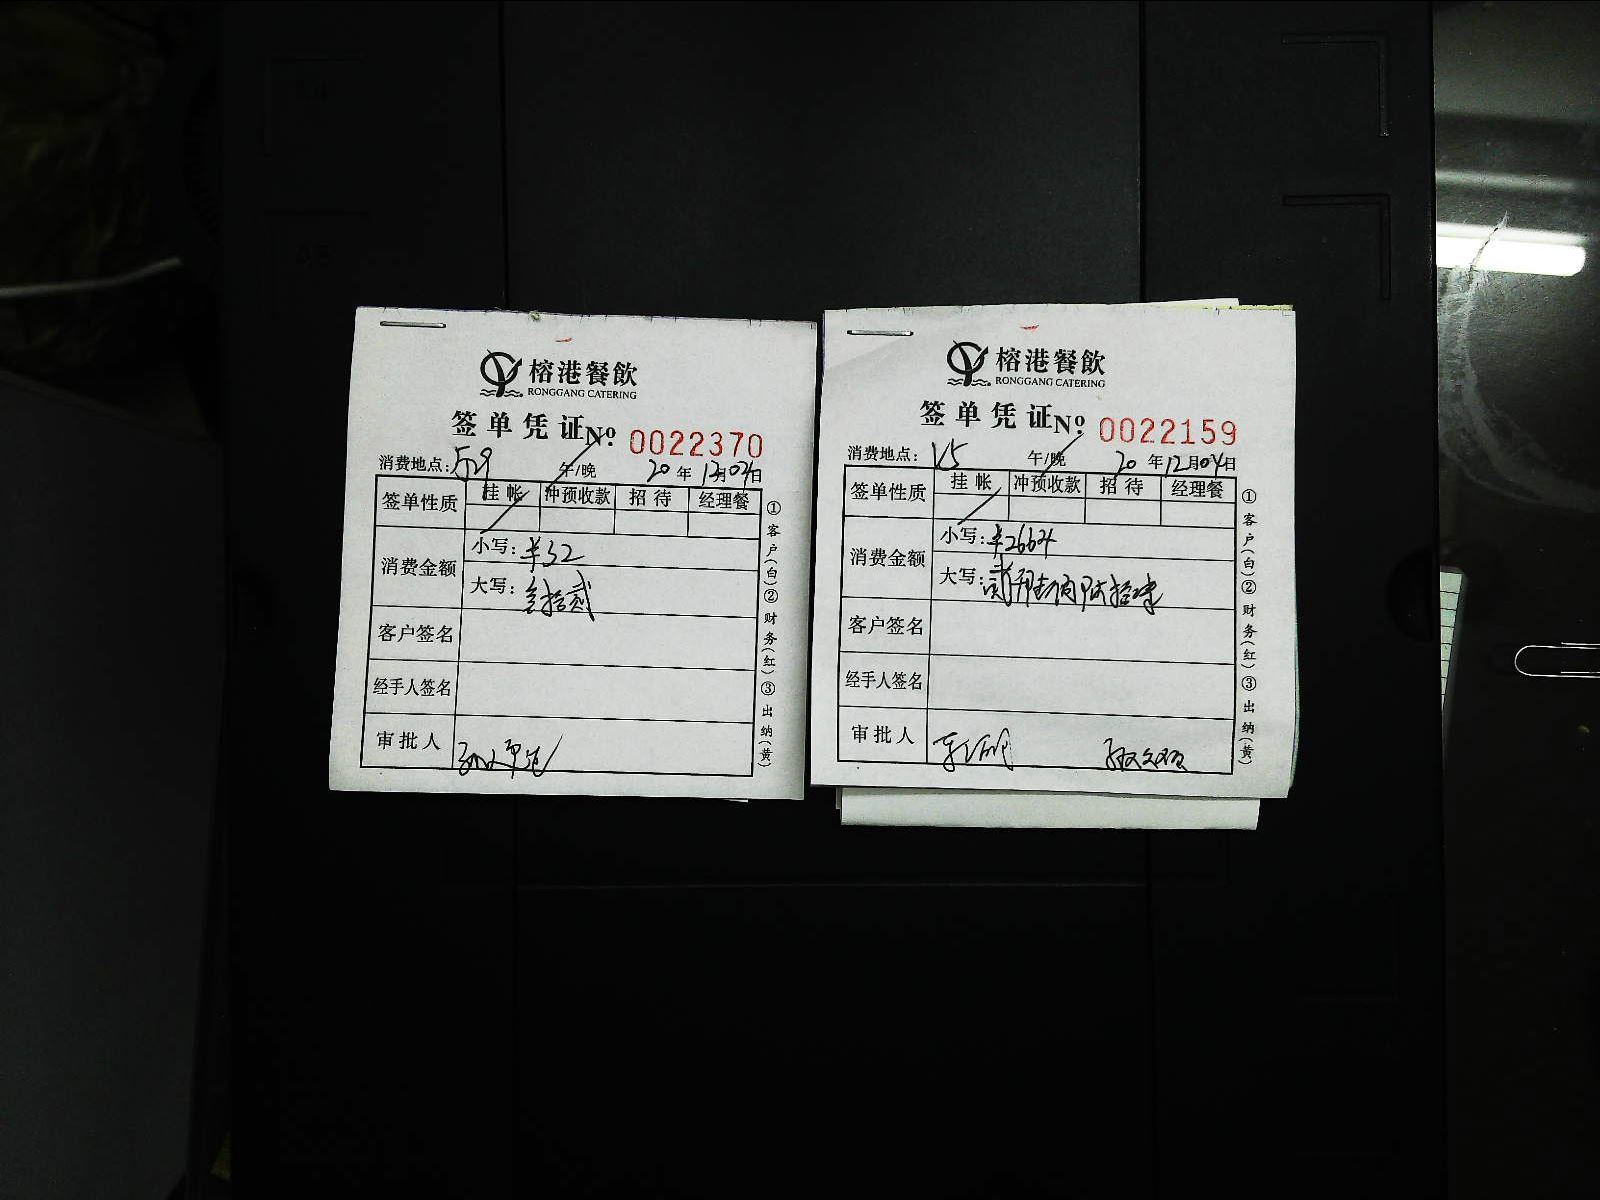 榕港餐飲
RONGGANG CATERING
签单凭证 No. 0022370
消费地点: 529 午/晚 20年12月04日
签单性质 挂帐 冲预收款 招待 经理餐
消费金额
小写: ¥32
大写: 叁拾贰
客户签名
经手人签名
审批人
①客户(白)②财务(红)③出纳(黄)
榕港餐飲
RONGGANG CATERING
签单凭证 No. 0022159
消费地点: V5 午/晚 20年12月04日
签单性质 挂帐 冲预收款 招待 经理餐
消费金额
小写: ¥2664
大写: 贰仟陆佰陆拾肆
客户签名
经手人签名
审批人
①客户(白)②财务(红)③出纳(黄)